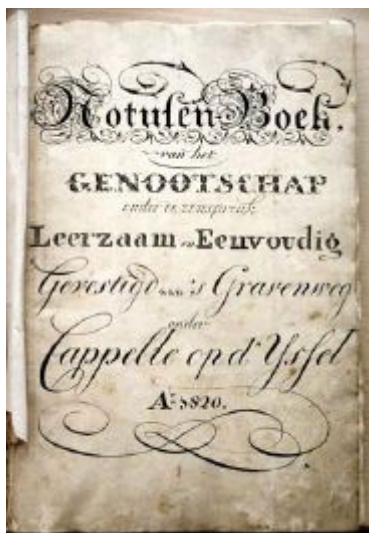 Notulen Boek.
van het
GENOOTSCHAP
onder de zinspreuk
Leerzaam en Eenvoudig
Gevestigd aan 's Gravenweg
onder
Cappelle op d' Yssel
Aº 1820.